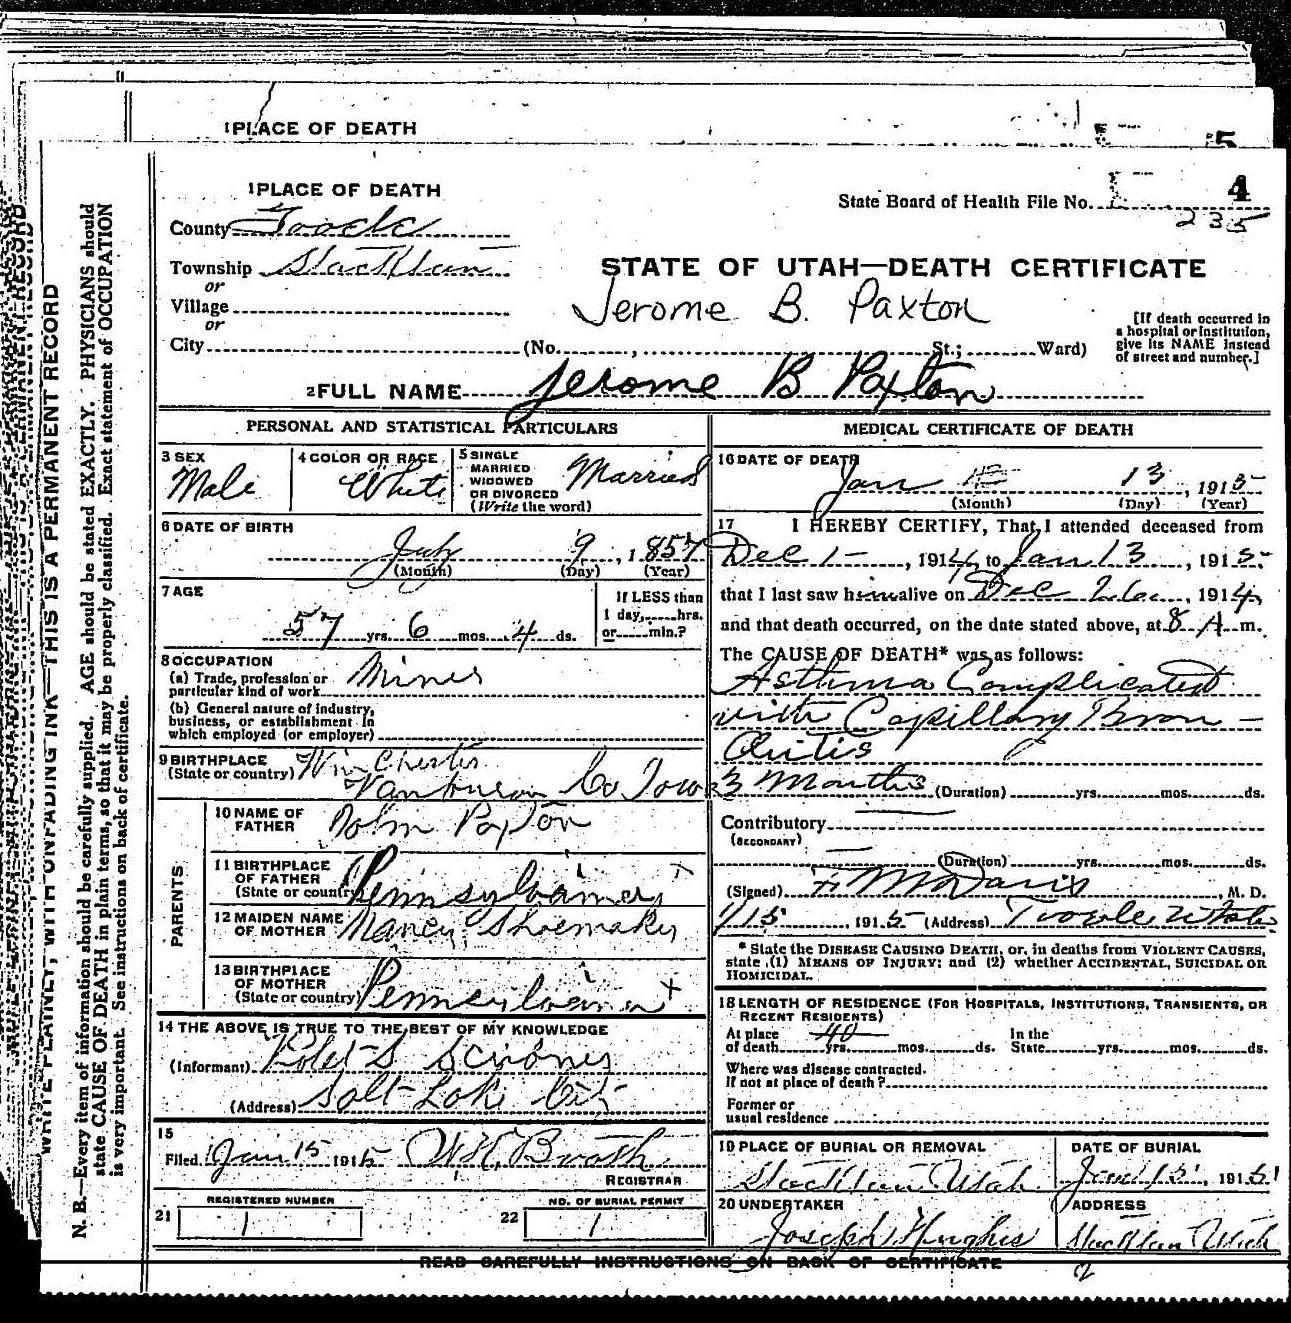 1 PLACE OF DEATH
5
1 PLACE OF DEATH
State Board of Health File No. 4
235
County Tooele
Township Stockton
or
Village
or
City (No. , St.; Ward)
STATE OF UTAH—DEATH CERTIFICATE
Jerome B. Paxton
[If death occurred in
a hospital or institution,
give its NAME instead
of street and number.]
2 FULL NAME Jerome B Paxton
PERSONAL AND STATISTICAL PARTICULARS
3 SEX
Male
4 COLOR OR RACE
White
5 SINGLE
MARRIED
WIDOWED
OR DIVORCED
(Write the word)
Married
6 DATE OF BIRTH
July 9, 1857
(Month) (Day) (Year)
7 AGE
57 yrs. 6 mos. 4 ds.
If LESS than
1 day, hrs.
or min.?
8 OCCUPATION
(a) Trade, profession or
particular kind of work Miner
(b) General nature of industry,
business, or establishment in
which employed (or employer)
9 BIRTHPLACE
(State or country) Winchester
Vanburen Co Iowa
PARENTS
10 NAME OF
FATHER John Paxton
11 BIRTHPLACE
OF FATHER
(State or country)
12 MAIDEN NAME
OF MOTHER Nancy Shoemaker
13 BIRTHPLACE
OF MOTHER
(State or country)
14 THE ABOVE IS TRUE TO THE BEST OF MY KNOWLEDGE
(Informant) Robt S
(Address) Salt Lake City
15
Filed Jan 15 1915 W.H. Booth
REGISTRAR
REGISTERED NUMBER
21 1
NO. OF BURIAL PERMIT
22 1
MEDICAL CERTIFICATE OF DEATH
16 DATE OF DEATH
Jan 13, 1915
(Month) (Day) (Year)
17 I HEREBY CERTIFY, That I attended deceased from
Dec 1-, 1914, to Jan 13, 1915
that I last saw him alive on Dec 26, 1914,
and that death occurred, on the date stated above, at 8 A m.
The CAUSE OF DEATH* was as follows:
Asthma Complicated
with Capillary Bron-
chitis
3 Months (Duration) yrs. mos. ds.
Contributory
(SECONDARY)
(Duration) yrs. mos. ds.
(Signed) F. M. Davis, M. D.
1/15, 1915 (Address) Tooele Utah
* State the DISEASE CAUSING DEATH, or, in deaths from VIOLENT CAUSES,
state (1) MEANS OF INJURY; and (2) whether ACCIDENTAL, SUICIDAL OR
HOMICIDAL.
18 LENGTH OF RESIDENCE (FOR HOSPITALS, INSTITUTIONS, TRANSIENTS, OR
RECENT RESIDENTS)
At place
of death 40 yrs. mos. ds.
In the
State yrs. mos. ds.
Where was disease contracted.
If not at place of death?
Former or
usual residence
19 PLACE OF BURIAL OR REMOVAL
Stockton Utah
DATE OF BURIAL
Jan 15, 1915
20 UNDERTAKER
Joseph Hughes
ADDRESS
Stockton Utah
2
READ CAREFULLY INSTRUCTIONS ON BACK OF CERTIFICATE
WRITE PLAINLY, WITH UNFADING INK—THIS IS A PERMANENT RECORD
N. B.—Every item of information should be carefully supplied. AGE should be stated EXACTLY. PHYSICIANS should
state CAUSE OF DEATH in plain terms, so that it may be properly classified. Exact statement of OCCUPATION
is very important. See instructions on back of certificate.